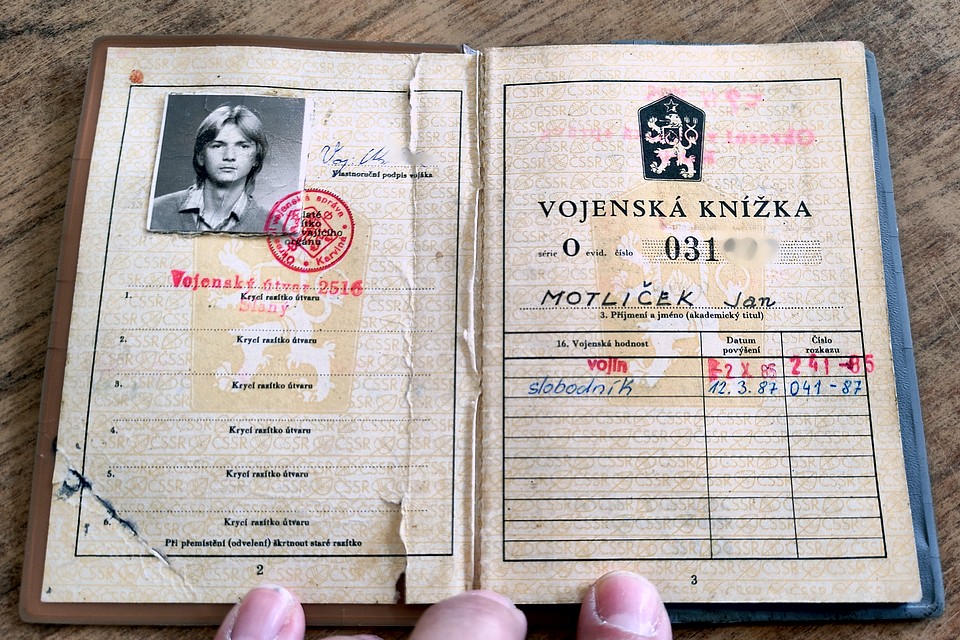 Vlastnoruční podpis vojáka
Vojenská správa
Karviná
Vojenský útvar 2516
Slaný
1. Krycí razítko útvaru
2. Krycí razítko útvaru
3. Krycí razítko útvaru
4. Krycí razítko útvaru
5. Krycí razítko útvaru
6. Krycí razítko útvaru
Při přemístění (odvelení) škrtnout staré razítko
2
VOJENSKÁ KNÍŽKA
série O evid. číslo 031
MOTLÍČEK Jan
3. Příjmení a jméno (akademický titul)
16. Vojenská hodnost Datum povýšení Číslo rozkazu
vojín -2 X. 85 241 -85
slobodník 12. 3. 87 041 - 87
3